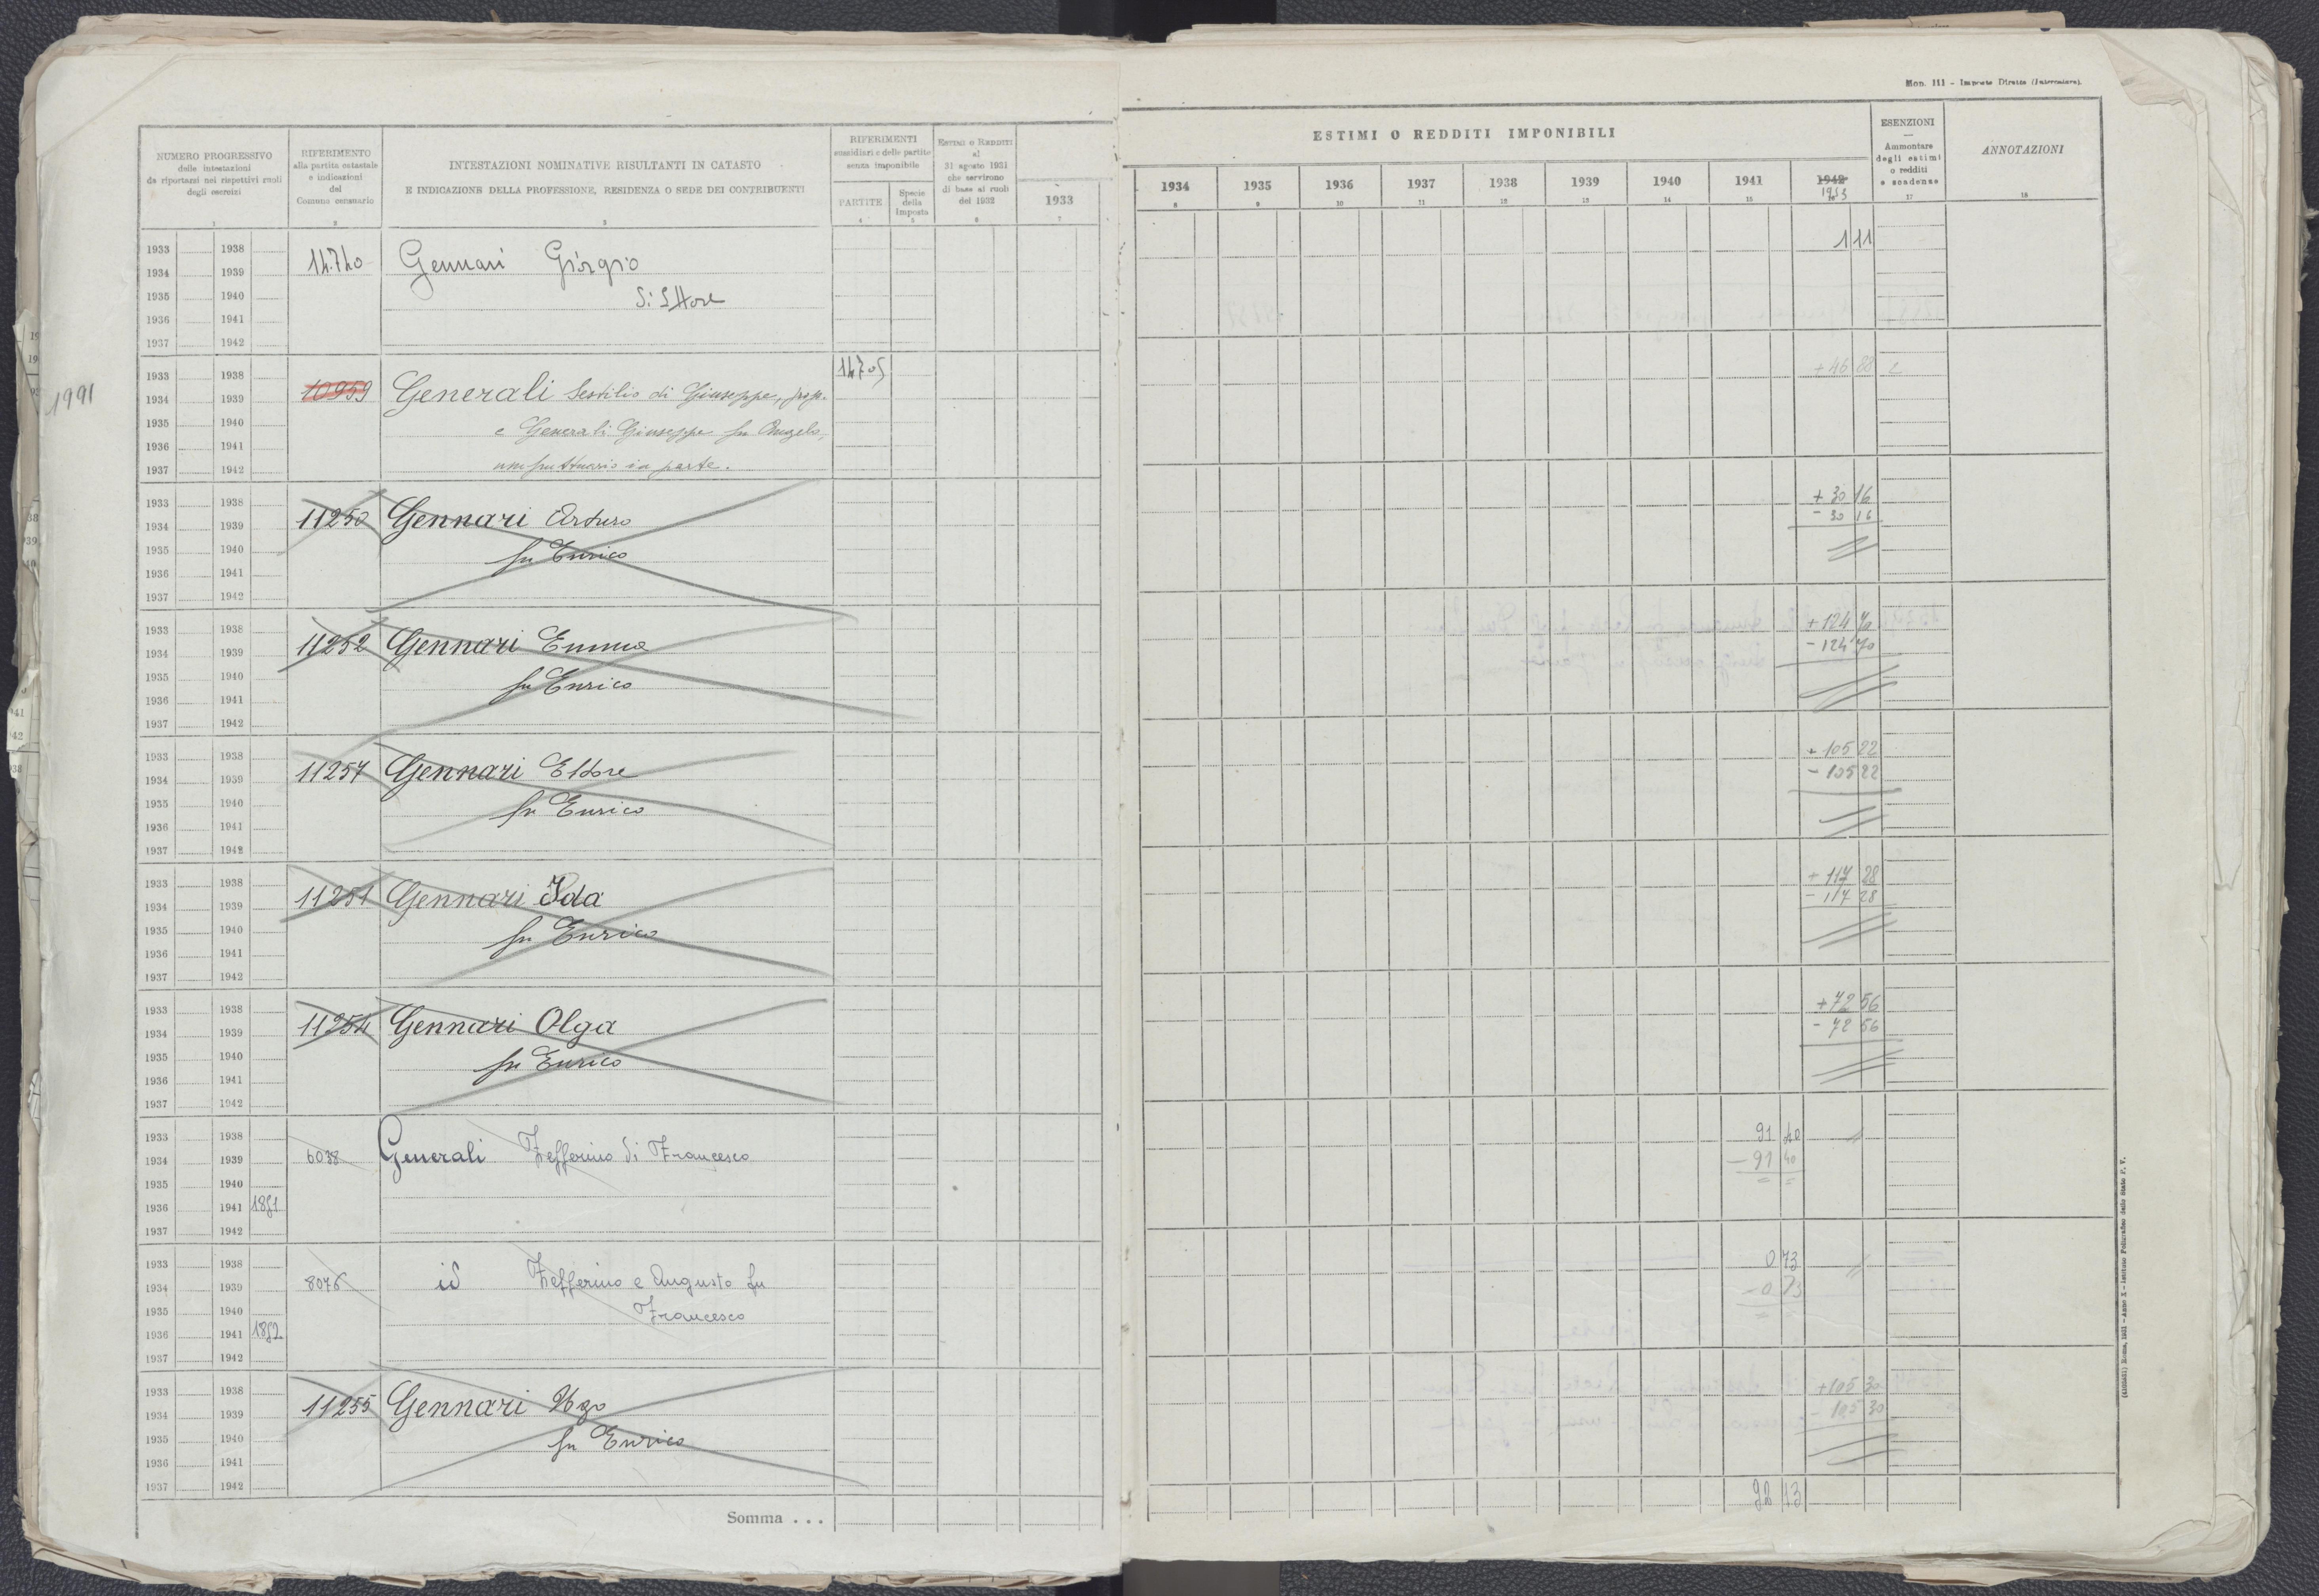 Mod. 111 - Imposte Dirette (Intercalare).
NUMERO PROGRESSIVO
delle intestazioni
da riportarsi nei rispettivi ruoli
degli esercizi
1
RIFERIMENTO
alla partita catastale
e indicazioni
del
Comune censuario
2
INTESTAZIONI NOMINATIVE RISULTANTI IN CATASTO
E INDICAZIONE DELLA PROFESSIONE, RESIDENZA O SEDE DEI CONTRIBUENTI
3
RIFERIMENTI
sussidiari e delle partite
senza imponibile
PARTITE
4
Specie
della
Imposta
5
ESTIMI O REDDITI
al
31 agosto 1931
che servirono
di base ai ruoli
del 1932
6
1933
7
ESTIMI O REDDITI IMPONIBILI
1934 1935 1936 1937 1938 1939 1940 1941 1942
1953
8 9 10 11 12 13 14 15 16
ESENZIONI
—
Ammontare
degli estimi
o redditi
e scadenze
17
ANNOTAZIONI
18
1933 1938
1934 1939
1935 1940
1936 1941
1937 1942
14.740 Gennari Giorgio
di Ettore
1 11
1991
1933 1938
1934 1939
1935 1940
1936 1941
1937 1942
10959 Generali Sestilio di Giuseppe, prop.
e Generali Giuseppe fu Angelo,
usufruttuario in parte.
14705
+ 46 88
1933 1938
1934 1939
1935 1940
1936 1941
1937 1942
11250 Gennari Arturo
fu Enrico
+ 30 16
- 30 16
1933 1938
1934 1939
1935 1940
1936 1941
1937 1942
11252 Gennari Emma
fu Enrico
+ 124 70
- 124 70
1933 1938
1934 1939
1935 1940
1936 1941
1937 1942
11257 Gennari Ettore
fu Enrico
+ 105 22
- 105 22
1933 1938
1934 1939
1935 1940
1936 1941
1937 1942
11251 Gennari Ida
fu Enrico
+ 117 28
- 117 28
1933 1938
1934 1939
1935 1940
1936 1941
1937 1942
11254 Gennari Olga
fu Enrico
+ 72 56
- 72 56
1933 1938
1934 1939
1935 1940
1936 1941 1851
1937 1942
6038 Generali Zefferino di Francesco
91 40
- 91 40
1933 1938
1934 1939
1935 1940
1936 1941 1852
1937 1942
8076 id Zefferino e Augusto fu
Francesco
0 73
- 0 73
1933 1938
1934 1939
1935 1940
1936 1941
1937 1942
11255 Gennari Ugo
fu Enrico
+ 105 30
- 105 30
Somma . . .
92 13
(4103451) Roma, 1931 - Anno X - Istituto Poligrafico dello Stato P. V.